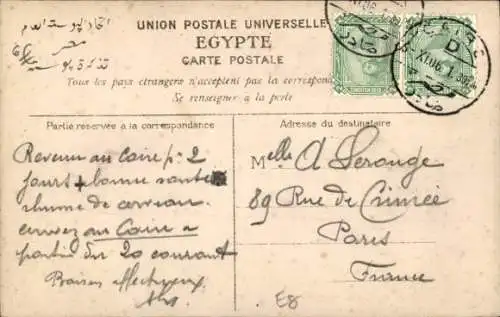 UNION POSTALE UNIVERSELLE
EGYPTE
CARTE POSTALE
Tous les pays étrangers n'acceptent pas la correspond
Se renseigner à la poste
Partie réservée à la correspondance
Adresse du destinataire
Revenu au Caire p. 2
jours + bonne santé
rhume de cerveau
envoyez au Caire à
partir du 20 courant
Baisers affectueux
Melle A
89 Rue de Crimée
Paris
France
E8
CAIRO
D